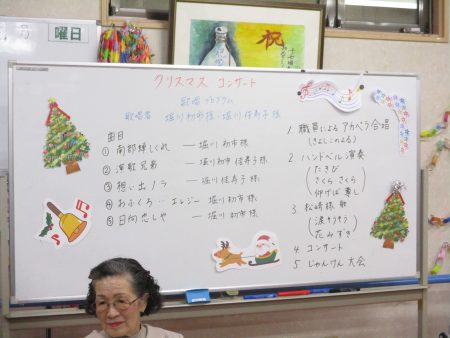 曜日
祝
クリスマス コンサート
歌唱プログラム
歌唱者 堀川初市様・堀川佳寿子様
曲目
① 南部蝉しぐれ ― 堀川初市様
② 演歌兄弟 ― 堀川佳寿子様
③ 想い出ノラ ― 堀川佳寿子様
④ おふくろ エレジー ― 堀川初市様
⑤ 日向恋しや ― 堀川初市様
1 職員による アカペラ合唱
(きよしこのよる)
2 ハンドベル演奏
(たきび
さくら さくら
仰げば尊し)
3 松崎様 歌
(涙そうそう
花みずき)
4 コンサート
5 じゃんけん 大会